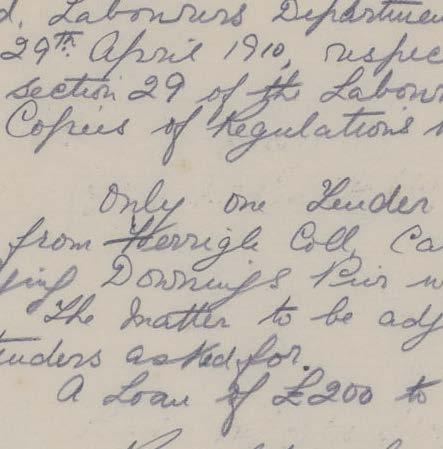 d, Labourers Departme
29th April 1910, respec
section 29 of the Labour
Copies of Regulations
Only one Tender
from Herrigle Coll, Ca
ying Downings Pier w
The Matter to be adj
tenders asked for.
A Loan of £200 to